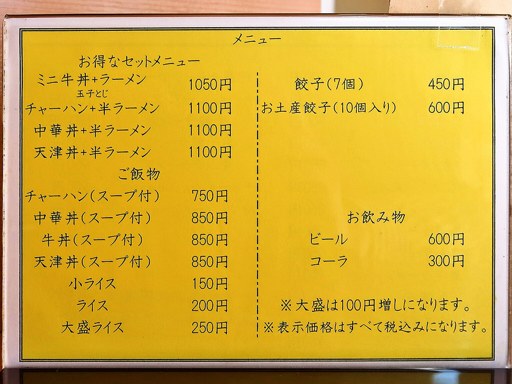 メニュー
お得なセットメニュー
ミニ牛丼+ラーメン 1050円
玉子とじ
チャーハン+半ラーメン 1100円
中華丼+半ラーメン 1100円
天津丼+半ラーメン 1100円
ご飯物
チャーハン(スープ付) 750円
中華丼(スープ付) 850円
牛丼(スープ付) 850円
天津丼(スープ付) 850円
小ライス 150円
ライス 200円
大盛ライス 250円
餃子(7個) 450円
お土産餃子(10個入り) 600円
お飲み物
ビール 600円
コーラ 300円
※大盛は100円増しになります。
※表示価格はすべて税込みになります。